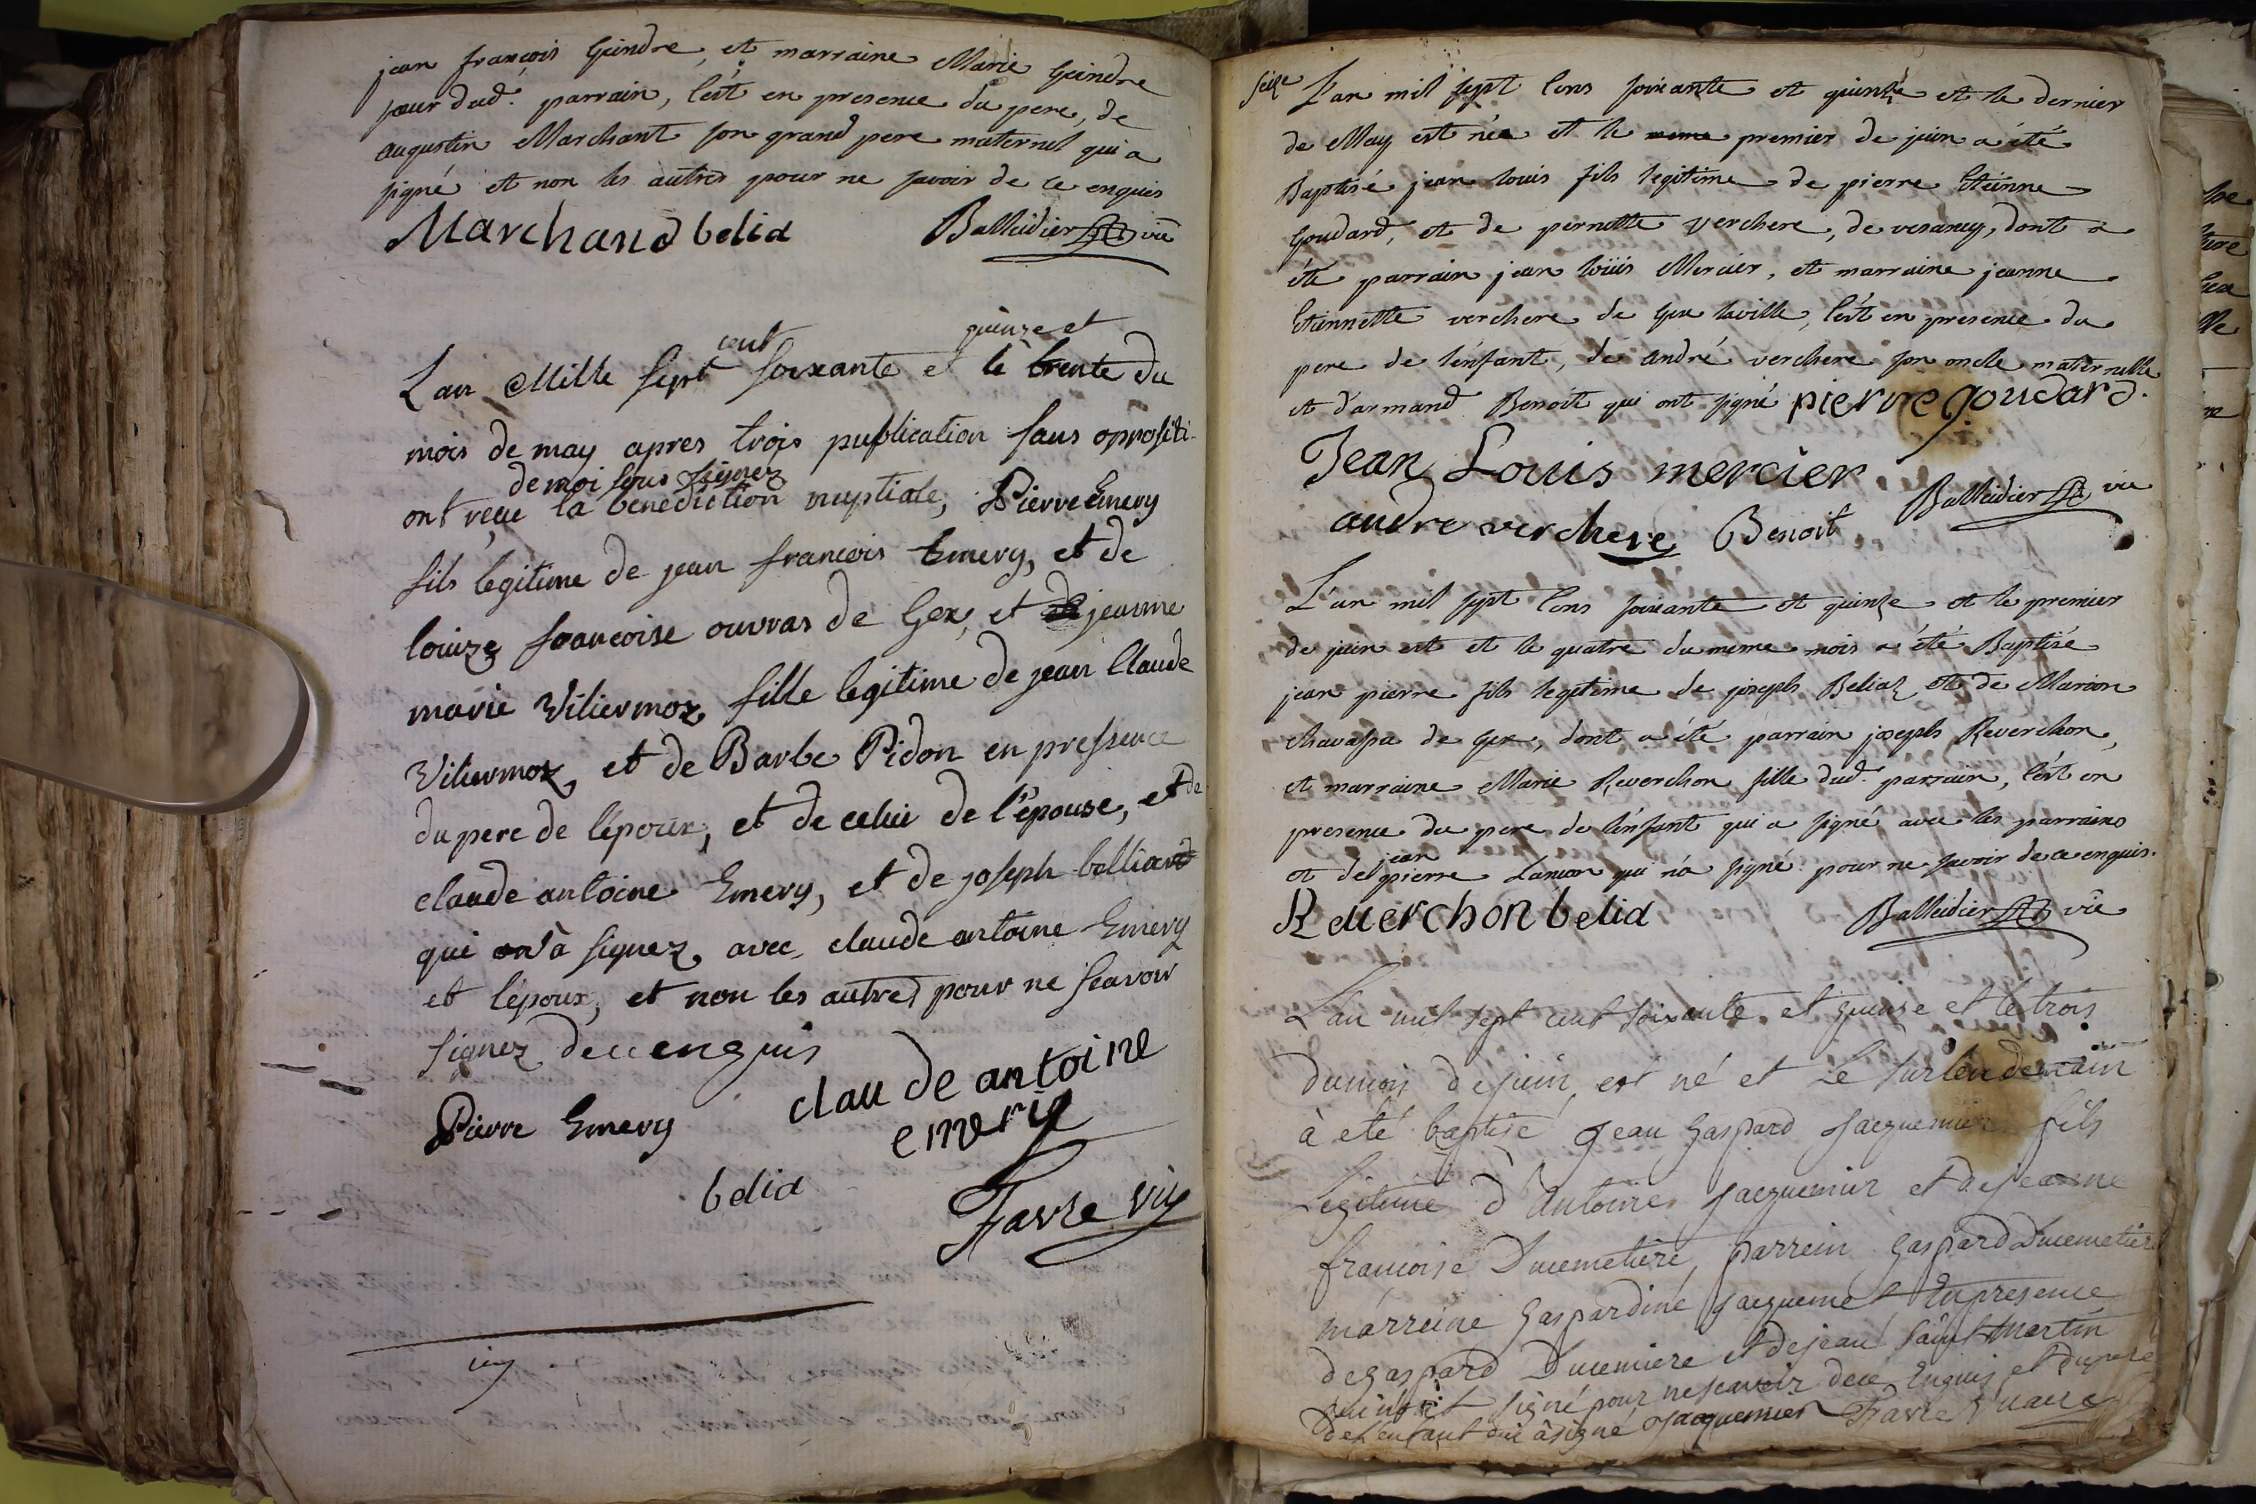 jean françois Geindre, et marraine Marie Geindre
sœur dud. parrain, C'ést en presence du pere, de
augustin Marchant son grand pere maternel qui a
signé et non les autres pour ne savoir de ce enquis
Marchand belia Balleidier vic
Lan Mille Sept cent soixante et quinze et le trente du
mois de may apres trois publication sans oppositi-
ont reçue la benediction nuptiale, de moi sous signez Pierre Emery
fils legitime de jean francois Emery, et de
louize francoise ouvras de Gex, et jeanne
marie Viliermoz fille legitime de jean Claude
Viliermoz, et de Barbe Pidon en pressence
du pere de l'époux, et de celui de l'épouse, et de
claude antoine Emery, et de joseph belliard
qui à signez avec claude antoine Emery
et l'époux, et non les autres pour ne scavoir
signez de ce enquis
Pierre Emery claude antoine
emery
belia
Favre vic
seize L'an mil sept Cens soixante et quinze et le dernier
de May est née et le meme premier de juin a été
Baptisé jean louis fils legitime de pierre Etienne
Goudard, et de pernette Verchere, de vesancy, dont a
été parrain jean loüis Mercier, et marraine jeanne
Etiennette verchere de Gex la ville, C'ést en presence du
pere de l'énfant, de andré verchere son oncle maternelle
et d'armand Benoit qui ont signé pierre goudard.
Jean Louis mercier
andre verchere Benoit Balleidier vic
L'an mil sept Cens soixante et quinze et le premier
de juin est et le quatre du meme mois a été Baptisé
jean pierre fils legitime de joseph Beliaz et de Marion
chavassu de Gex, dont a été parrain joseph Reverchon,
et marraine Marie Reverchon fille dud. parrain, C'ést en
presence du pere de l'énfant qui a signé avec les parrains
et de jean pierre Lancon qui n'a signé pour ne savoir de ce enquis.
Reverchon belia Balleidier vic
L'an mil sept cent soixante et quinse et le trois
du mois de juin est né et Le surlendemain
à eté baptisé Jean Gaspard Jacquemier fils
Legitime d'Antoine Jacquemier et de jeanne
francoise Ducemetiere, parrein Gaspard Ducemetiere
marreine Gaspardine Jacquemet En presence
de gaspard Ducemiere et de jean Saint Martin
qui n'ont signé pour ne scavoir de ce Enquis et du pere
de L'enfant qui a signé Jacquemier Favre vicaire